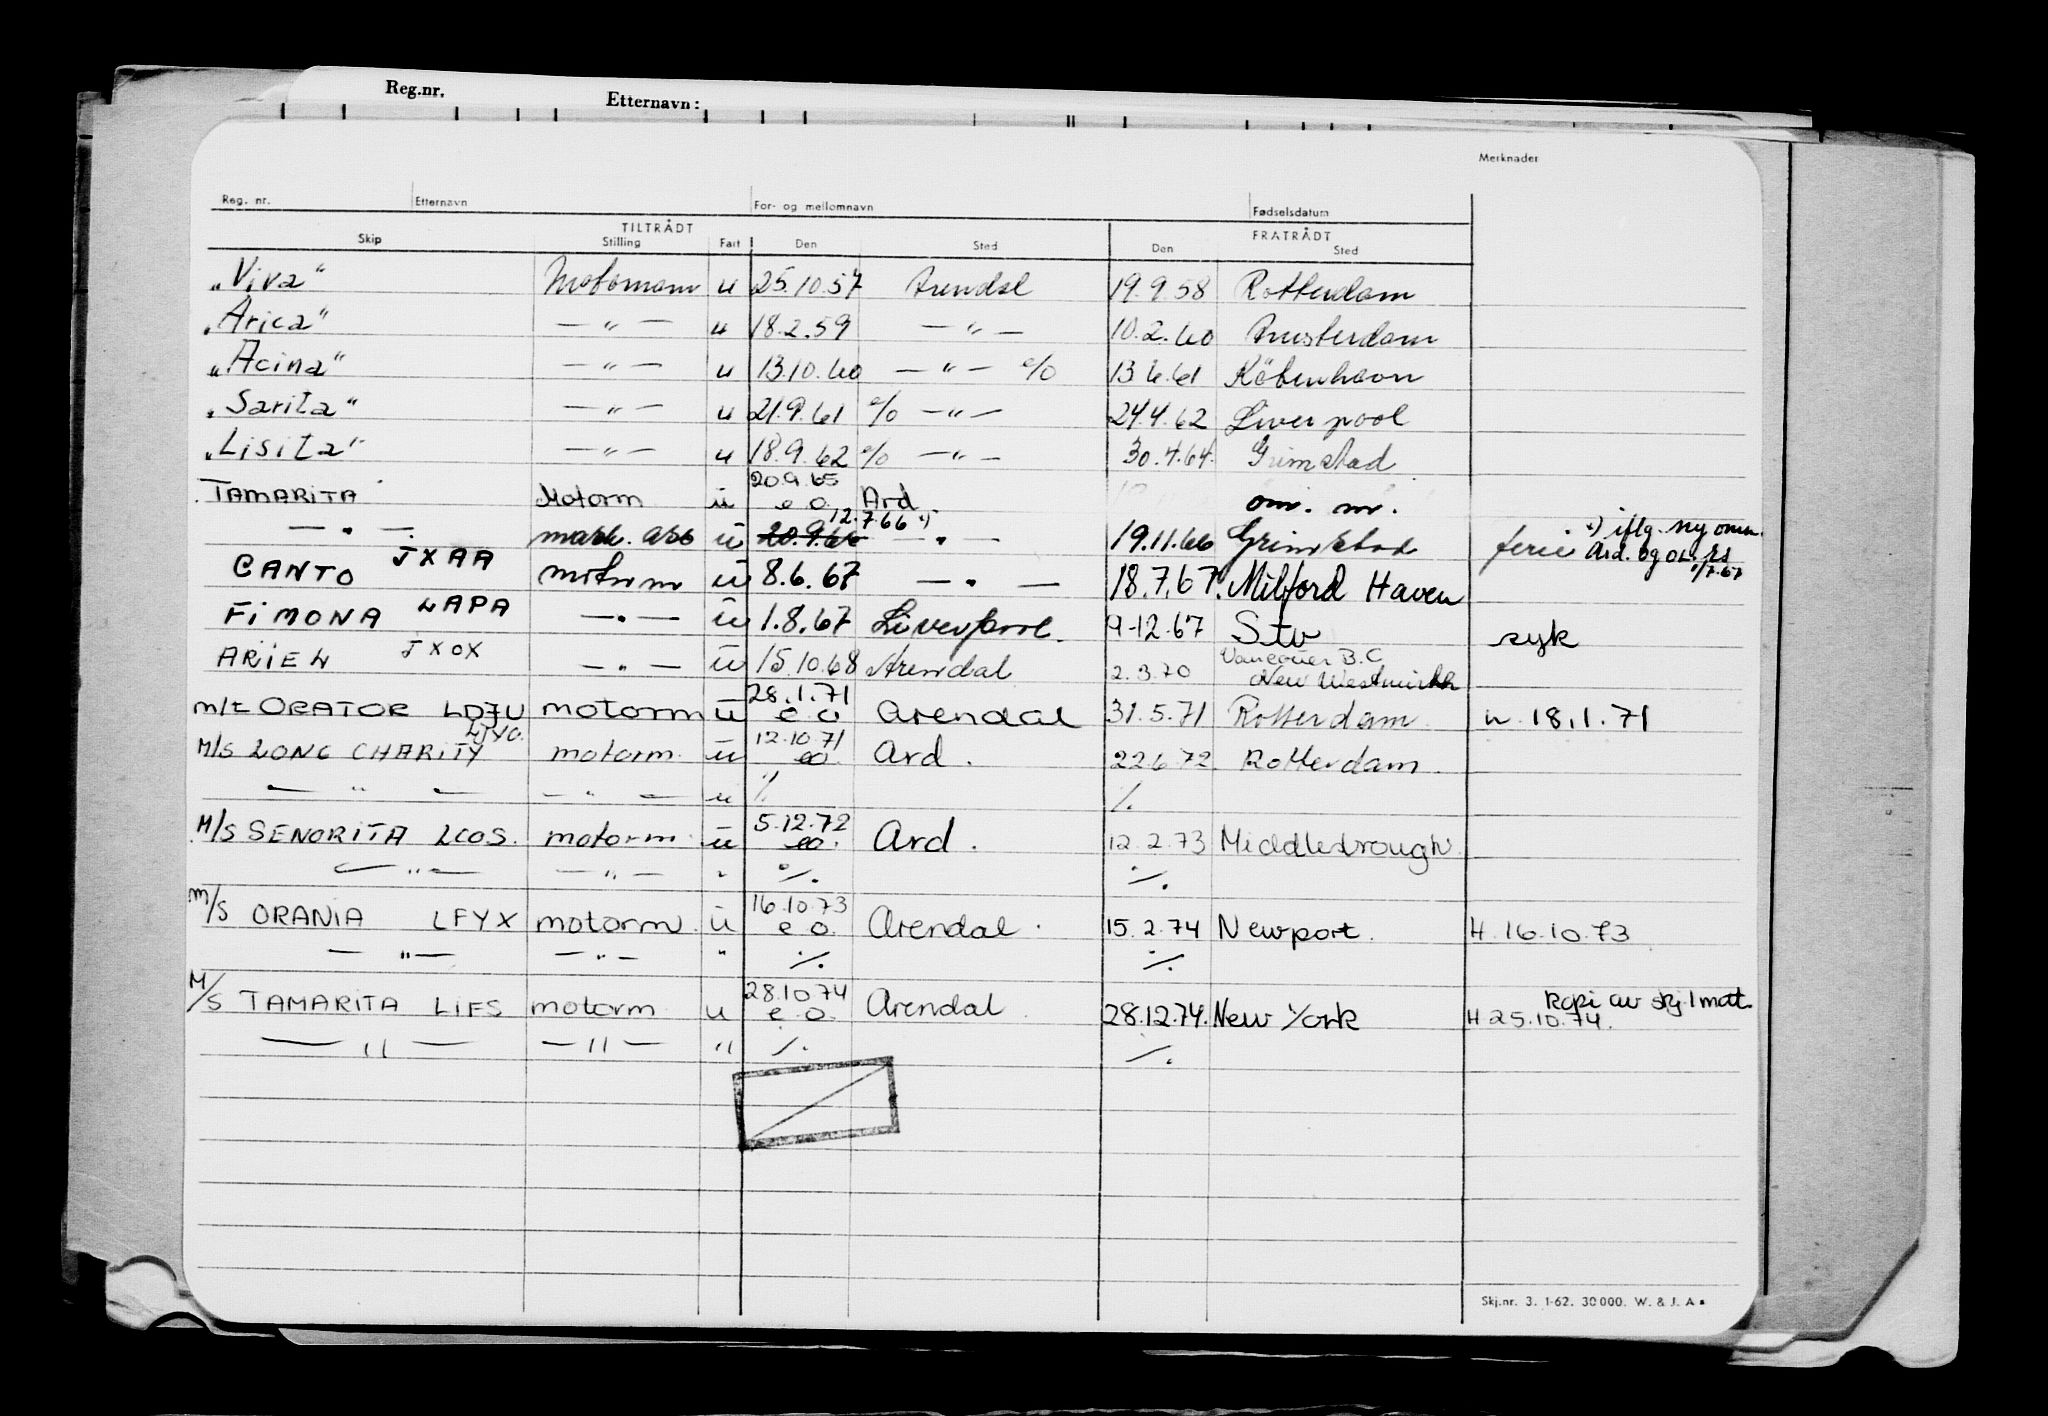 Reg.nr. Etternavn:
Merknader
Reg. nr. Etternavn For- og mellomnavn Fødselsdatum
TILTRÅDT FRATRÅDT
Skip Stilling Fart Den Sted Den Sted
„Viva“ Motormann u 25.10.57 Arendal 19.9.58 Rotterdam
„Arica“ — „ — u 18.2.59 — „ — 10.2.60 Amsterdam
„Acina“ — „ — u 13.10.60 — „ — e/o 13.6.61 København
„Sarita“ — „ — u 21.9.61 e/o — „ — 24.4.62 Liverpool
„Lisita“ — „ — u 18.9.62 e/o — „ — 30.4.64. Grimstad
20.9.65
TAMARITA Motorm u e o Ard om. nr.
12.7.66 x) x) iflg. ny omm.
— „ — mask. ass u 20.9.66 — „ — 19.11.66 Grimstad ferie Ard. og
1/7.67
CANTO JXAA motorm u 8.6.67 — „ — 18.7.67. Milford Haven
FIMONA LAPA — „ — u 1.8.67 Liverpool. 9-12.67 Stv syk
ARIEL JXOX — „ — u 15.10.68 Arendal 2.3.70 Vancouver B.C.
New Westminster
28.1.71
m/t ORATOR LDJU motorm u e o Arendal 31.5.71 Rotterdam 18.1.71
12.10.71
M/S LONG CHARITY motorm. u eo. Ard. 22.6.72. Rotterdam.
— „ — — „ — u ٪. ٪.
5.12.72
M/S SENORITA LCOS. motorm. u eo. Ard. 12.2.73 Middlesbrough
— „ — — „ — „ ٪. ٪.
16.10.73
m/s ORANIA LFYX motorm. u e o. Arendal. 15.2.74 Newport. H. 16.10.73
— „ — — „ — „ ٪. ٪.
28.10.74 Kopi av skj 1 mott.
M/S TAMARITA LIFS motorm u e o. Arendal 28.12.74. New York H 25.10.74.
— „ — — „ — „ ٪. ٪.
Skj.nr. 3. 1-62. 30000. W. & J. A s